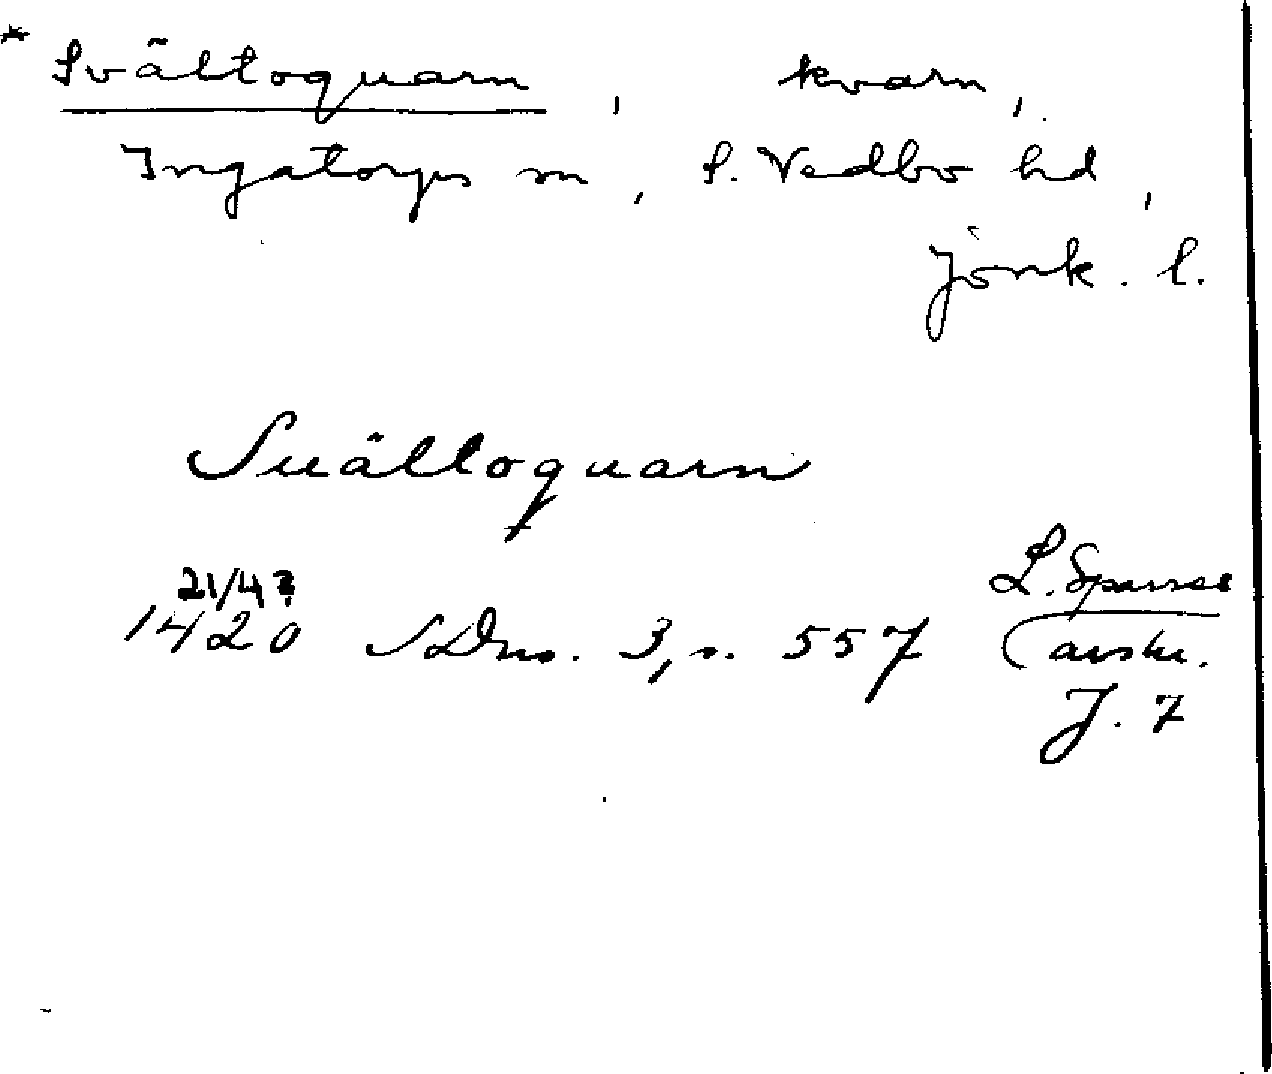 * Svältoquarn, kvarn,
Ingatorps sn, S. Vedbo hd,
Jönk. l.
Suältoquarn
21/4 ?
1420 SDns. 3, s. 557
L. Sparres
avskr.
J. 7